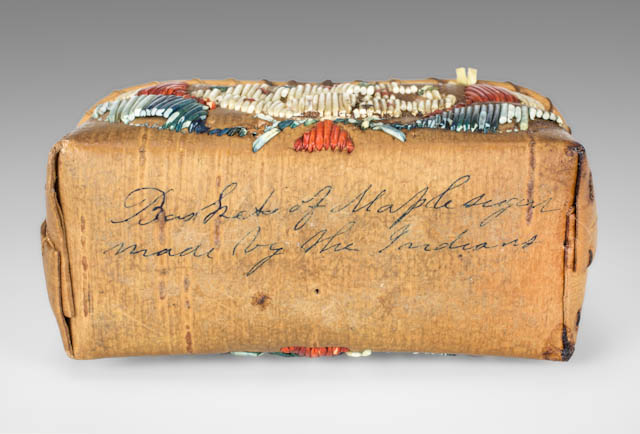 Basket of Maple sugar
made by the Indians